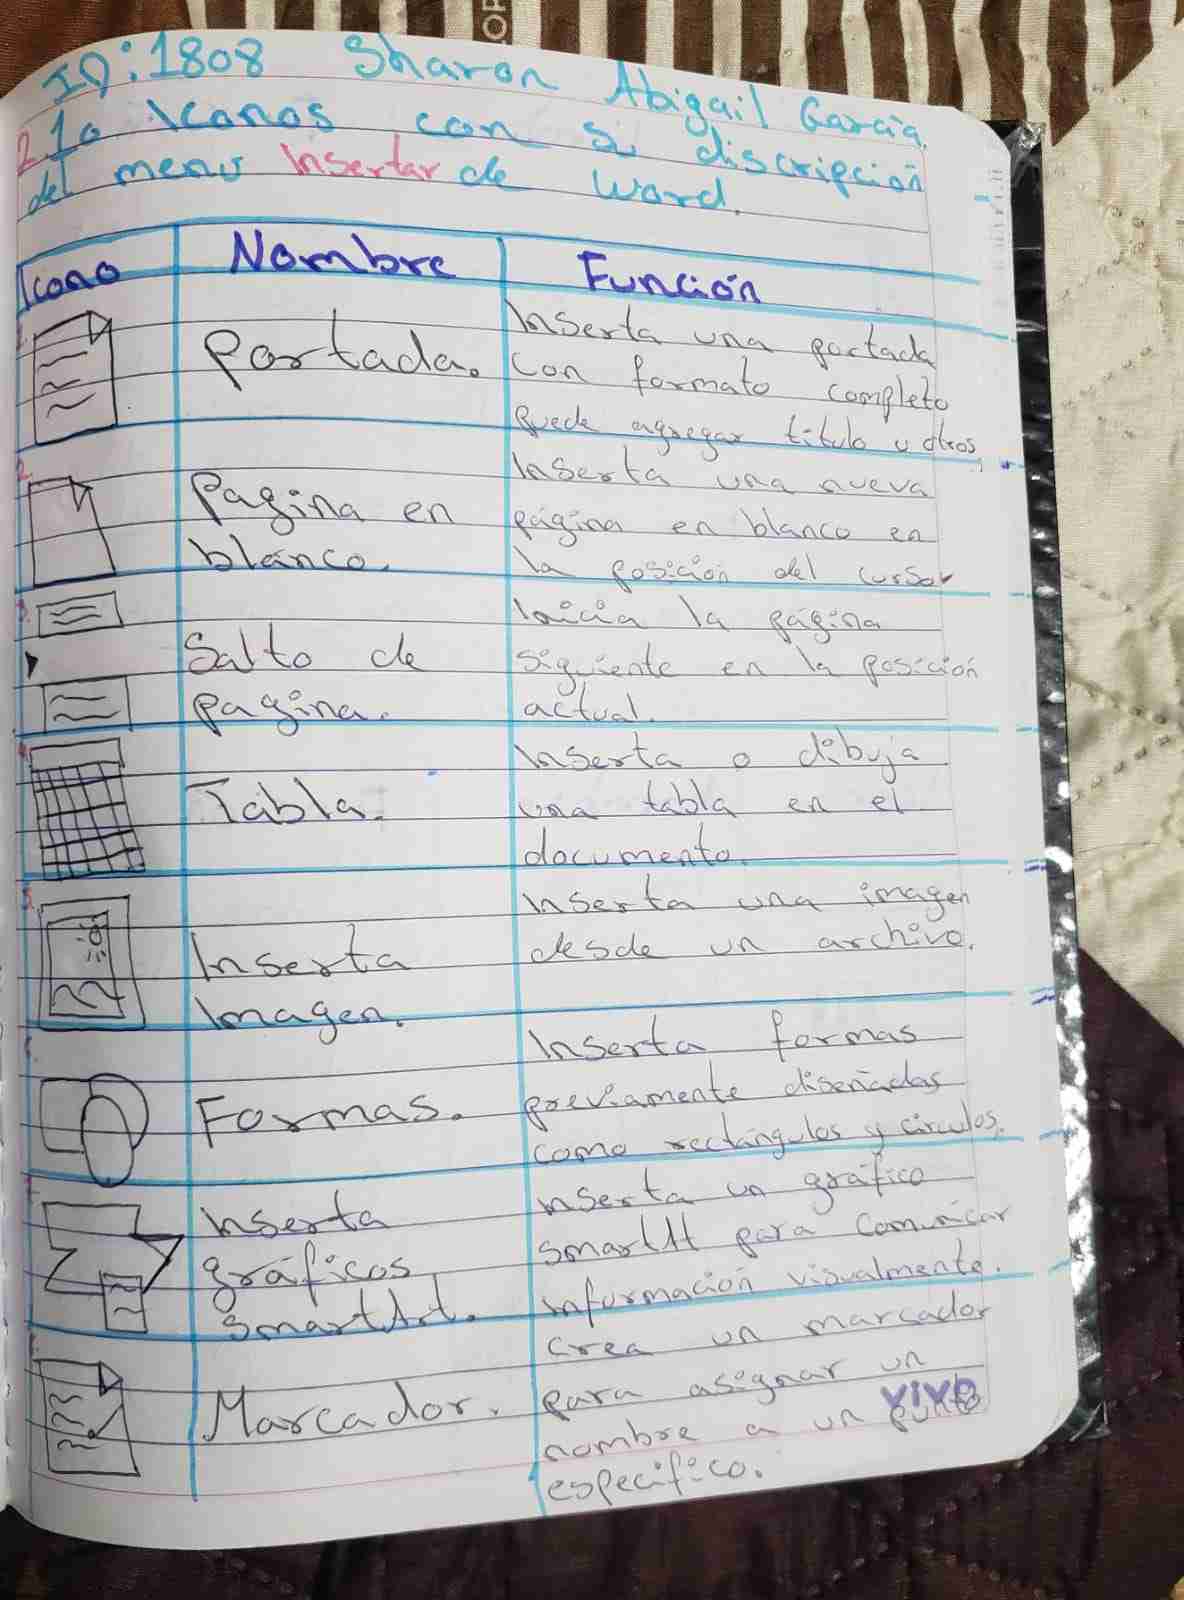 ID:1808 Sharon Abigail García.
2 10 Iconos con si discripción
del menu Insertar de Word.
Icono Nombre Función
1.
Portada.
Inserta una portada
con formato completo
puede agregar titulo y otros.
2.
Pagina en
blanco.
Inserta una nueva
página en blanco en
la posición del cursor
3.
Salto de
pagina.
Inicia la página
siguiente en la posición
actual.
4.
Tabla.
Inserta o dibuja
una tabla en el
documento.
5.
Inserta
Imagen.
Inserta una imagen
desde un archivo.
Formas.
Inserta formas
previamente diseñadas
como rectángulos y círculos.
Inserta
gráficos
SmartArt.
Inserta un gráfico
smartArt para comunicar
información visualmente.
Marcador.
crea un marcador
para asignar un
nombre a un punto
especifico.
VIVO